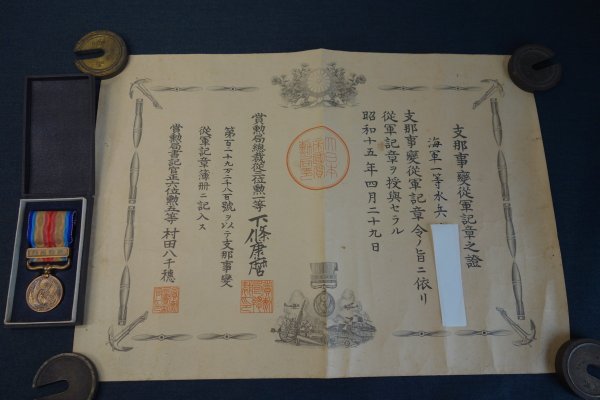 支那事變從軍記章之證
海軍一等水兵
支那事變從軍記章令ノ旨ニ依リ
從軍記章ヲ授與セラル
昭和十五年四月二十九日
賞勲局總裁從三位勲二等 下條康麿
第百二十九万二千八百號ヲ以テ支那事變
從軍記章簿册ニ記入ス
賞勲局書記官正六位勲五等 村田八千穂